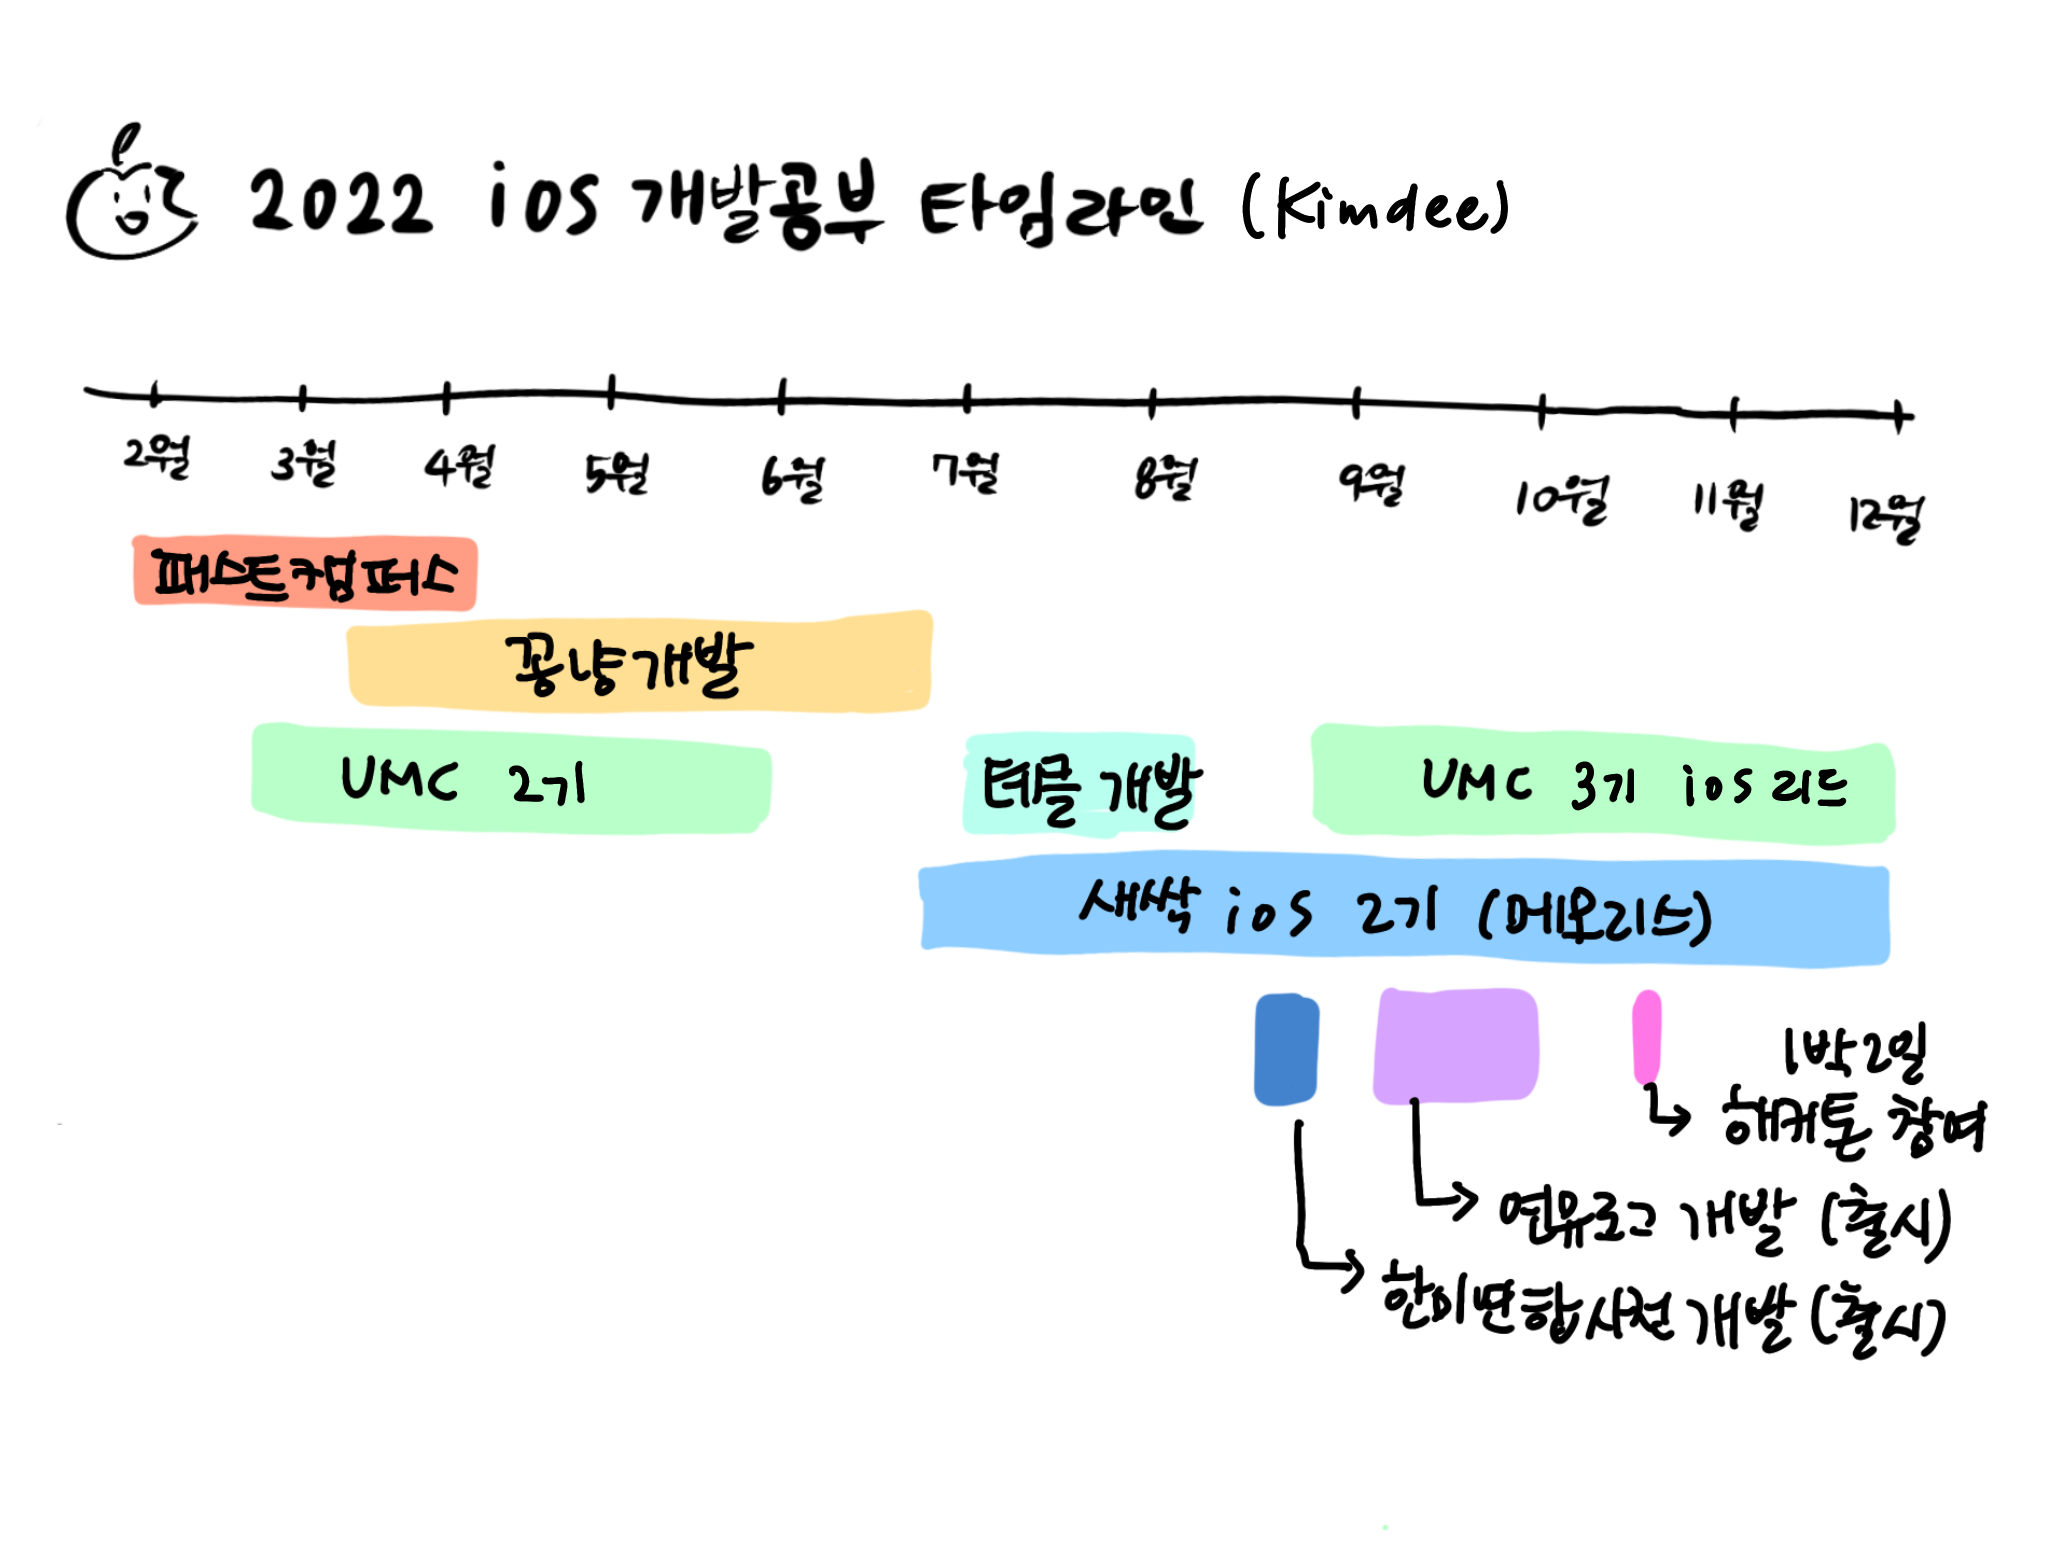 2022 iOS 개발공부 타임라인 (Kimdee)
2월 3월 4월 5월 6월 7월 8월 9월 10월 11월 12월
패스트캠퍼스
꽁냥개발
UMC 2기
테클 개발
UMC 3기 iOS 리드
새싹 iOS 2기 (메모리스)
1박2일
해커톤 참여
연유로그 개발 (출시)
한미연합사전 개발 (출시)